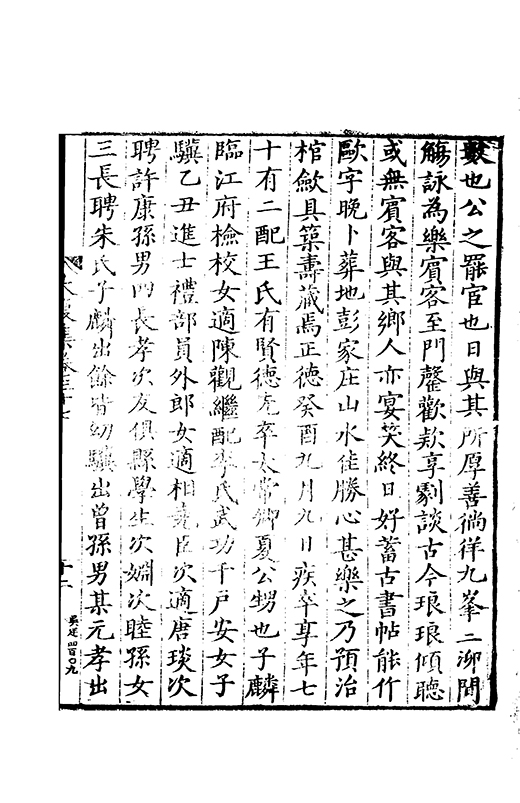 數也公之罷官也日與其所厚善徜徉九峯二泖間
觴詠為樂賓客至門罄歡款享劇談古今琅琅傾聽
或無賓客與其鄉人亦宴笑終日好蓄古書帖能作
歐字晚卜葬地彭家庄山水佳勝心甚樂之乃預治
棺斂具築壽藏焉正德癸酉九月九日疾卒享年七
十有二配王氏有賢德先卒太常卿夏公甥也子麟
臨江府檢校女適陳觀繼配李氏武功千戶安女子
驥乙丑進士禮部員外郎女適相堯臣次適唐琰次
聘許康孫男四長孝次友俱縣學生次婣次睦孫女
三長聘朱氏子麟出餘皆幼驥出曾孫男某元孝出
集卷三十七
十二
四百〇九